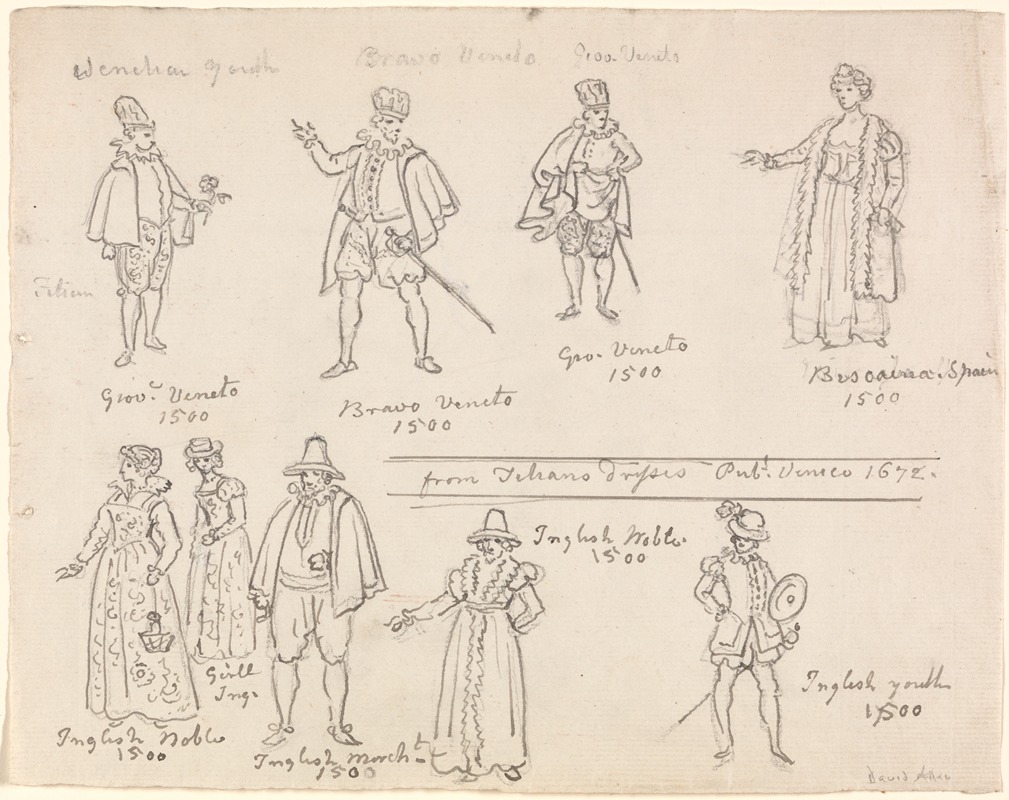 Venetian youth
Bravo Veneto
Giov. Veneto
Titian
Giov.e Veneto
1500
Bravo Veneto
1500
Gio. Veneto
1500
Biscaina. Spain
1500
from Titians Drysses Pub.d Venice 1672.
Inglish Noble.
1500
Girll
Ing.
Inglish youth
1500
Inglish Noble
1500
Inglish March.t
1500
David Allan